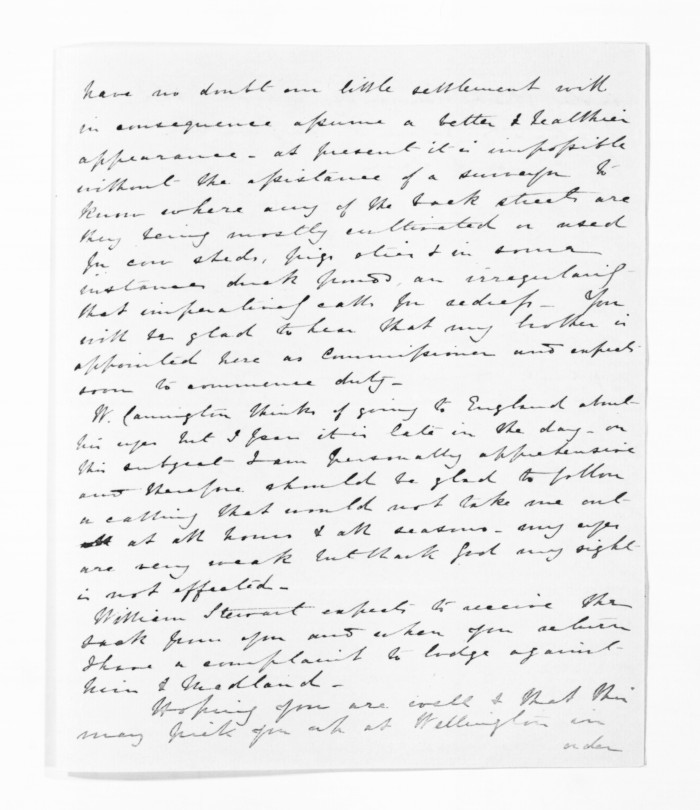 have no doubt our little settlement will
in consequence assume a better & healthier
appearance – at present it is impossible
without the assistance of a surveyor to
know where any of the back streets are
they being mostly cultivated or used
for cow sheds, pigs sties & in some
instances duck ponds, an irregularity
that imperatively calls for redress – You
will be glad to hear that my brother is
appointed here as Commissioner and expects
soon to commence duty –
W. thinks of going to England about
his eyes but I fear it is late in the day – on
this subject I am personally apprehensive
and therefore should be glad to follow
a calling that would not take me out
at all hours & all seasons – my eyes
are very weak but thank God my sight
is not affected –
William Stewart expects to receive the
sack from you and when you return
I have a complaint to lodge against
him & –
Hoping you are well & that this
may pick you up at Wellington in
order